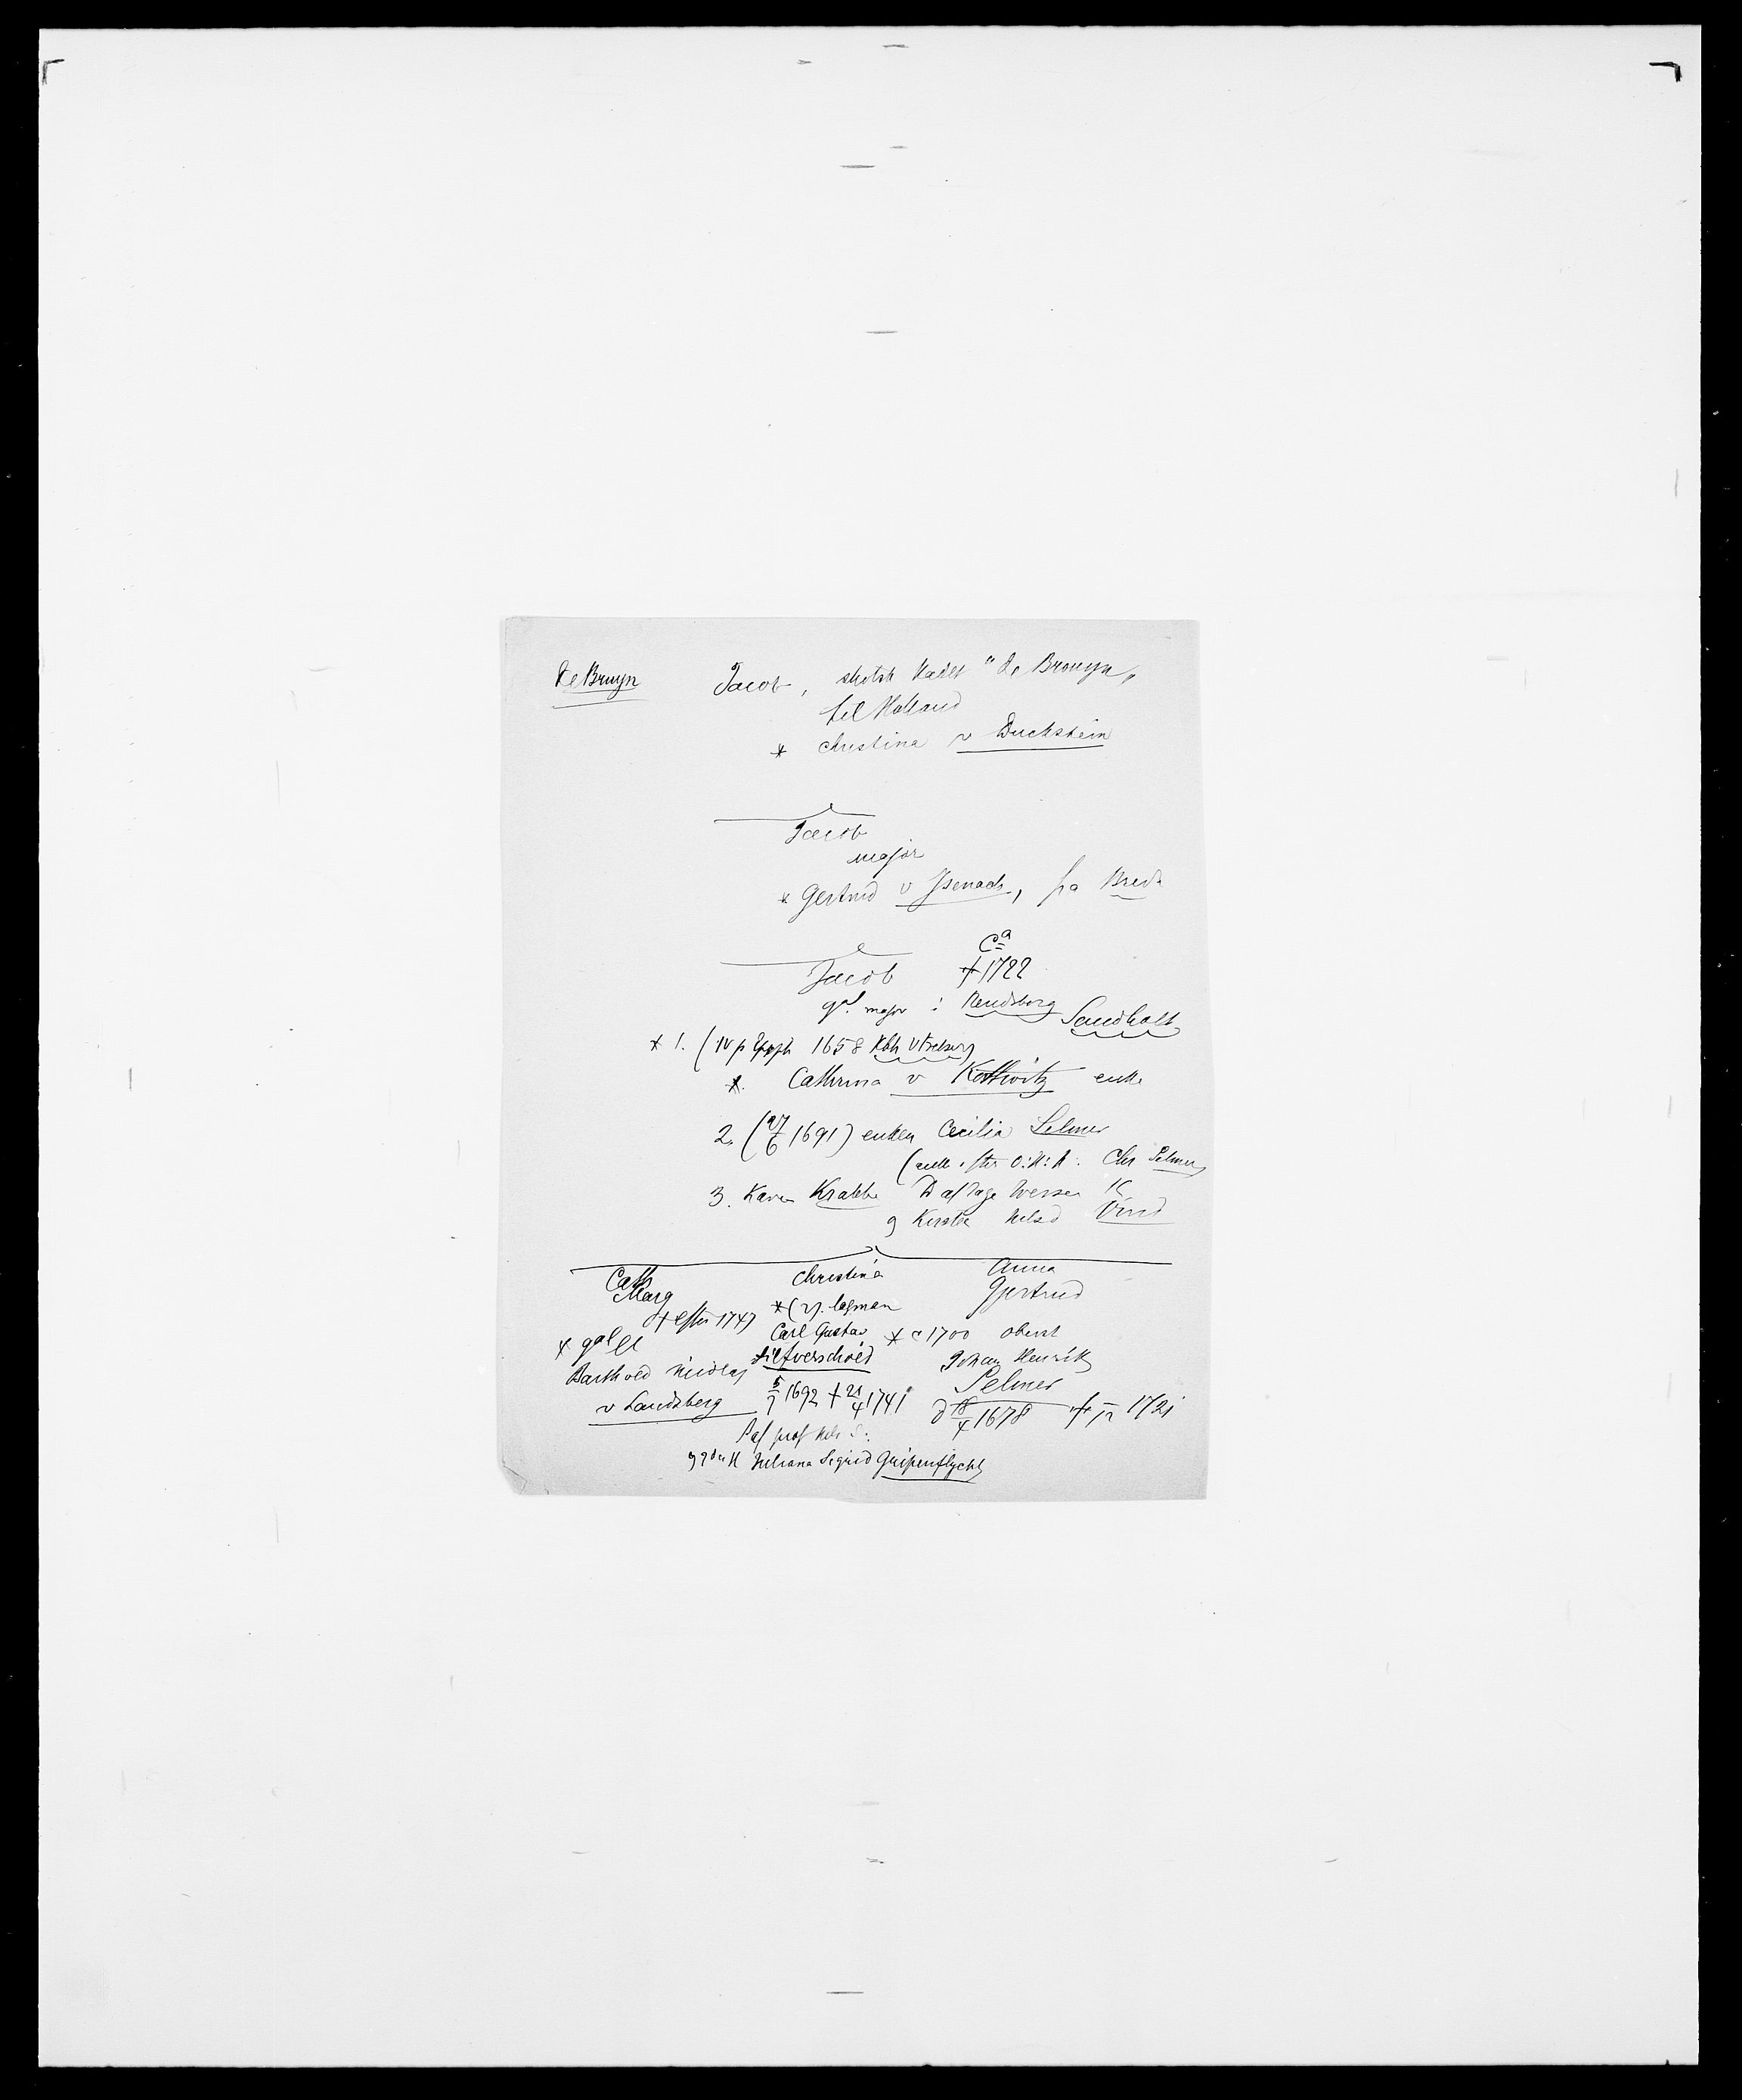 de Bruyn
Jacob, skotsk kadet "de Brouyn"
til Holland
* Christina v Buchstein
Jacob
major
* Gertrud v Isenach, fra Breda
Jacob
Cª
† 1722
major i Rendsborg
Sandholt
* 1. ( 1658 Kbh
* Cathrina v Kottwitz enke
2. (27/6 1691) enken Cecilia Selmer
(enke efter Chr Selmer)
3. Karen Krabbe D af Tage Iversen K
og Kirsten Nilsd Vind
Cath
Marg
† efter 1747
Barthold Nicolaj
v Landsberg
Christina
* (2). lagman
Carl Gustav
Silfverschöld
5/9 1692 † 21/4 1741
S af prof
Juliana Sigrid Gripenflycht
Anna
Gertrud
* c 1700 oberst
Johan Henrik
Selmer
d 18/4 1678 † 1721